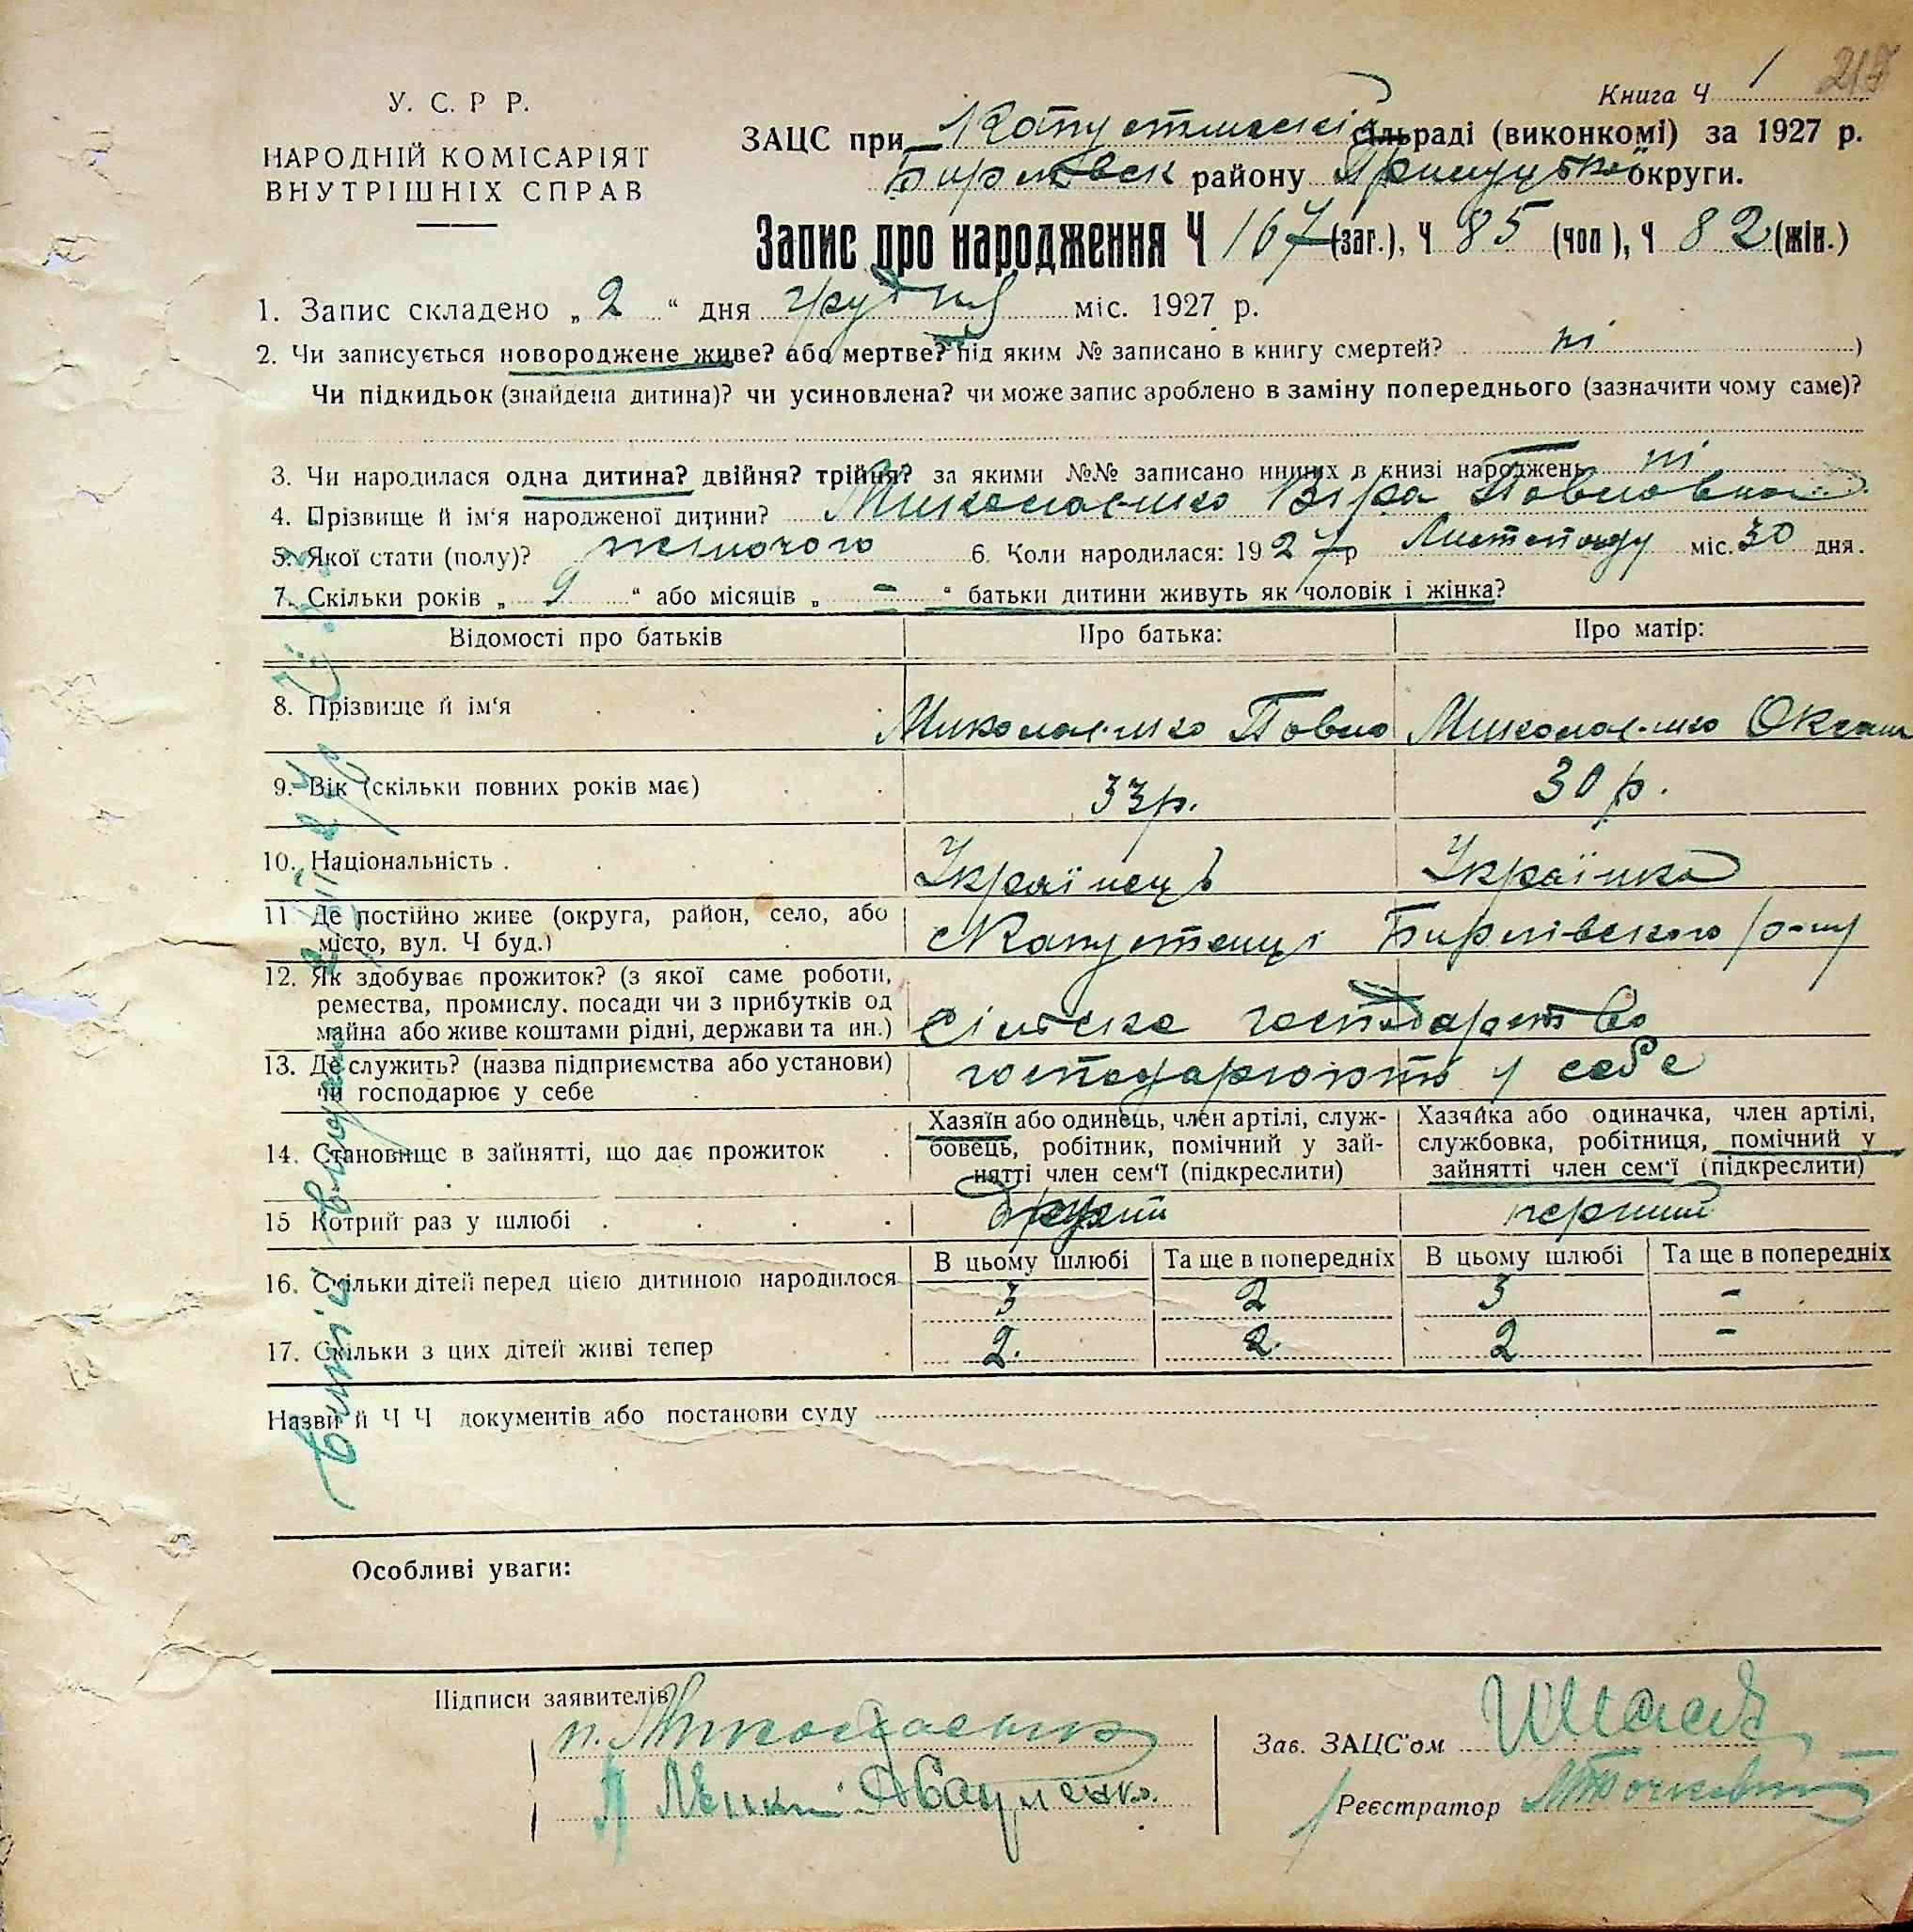 Книга Ч 1 217
У. С. Р Р.
НАРОДНІЙ КОМІСАРІЯТ
ВНУТРІШНІХ СПРАВ
ЗАЦС при Капустинській сільраді (виконкомі) за 1927 р.
району округи.
Запис про народження Ч 167 (заг.), Ч 85 (чол), Ч 82 (жін.)
1. Запис складено „ 2 “ дня грудня міс. 1927 р.
2. Чи записується новороджене живе? або мертве? під яким № записано в книгу смертей? ні )
Чи підкидьок (знайдена дитина)? чи усиновлена? чи може запис зроблено в заміну попереднього (зазначити чому саме)?
3. Чи народилася одна дитина? двійня? трійня? за якими №№ записано инших в книзі народжень ні
4. Прізвище й ім‘я народженої дитини? Миколаєнко Віра Павловна
5. Якої стати (полу)? жіночого 6. Коли народилася: 1927 р Листопаду міс. 30 дня.
7. Скільки років „ 9 “ або місяців „ – “ батьки дитини живуть як чоловік і жінка?
Відомості про батьків Про батька: Про матір:
8. Прізвище й ім‘я Миколаєнко Павло Миколаєнко Оксана
9. Вік (скільки повних років має) 33 р. 30 р.
10. Національність Українець Українка
11 Де постійно живе (округа, район, село, або
місто, вул. Ч буд.) с Капустенці Бирлівського р-ну
12. Як здобуває прожиток? (з якої саме роботи,
ремества, промислу. посади чи з прибутків од
майна або живе коштами рідні, держави та ин.) Сільське господарство
13. Де служить? (назва підприємства або установи)
чи господарює у себе господарюють у себе
Хазяїн або одинець, член артілі, служ-
бовець, робітник, помічний у зай-
нятті член сем‘ї (підкреслити)
Хазяйка або одиначка, член артілі,
службовка, робітниця, помічний у
зайнятті член сем‘ї (підкреслити)
14. Становище в зайнятті, що дає прожиток
15 Котрий раз у шлюбі другий перший
В цьому шлюбі Та ще в попередніх В цьому шлюбі Та ще в попередніх
16. Скільки дітей перед цією дитиною народилося 3 2 3 -
17. Скільки з цих дітей живі тепер 2. 2. 2 -
Назви й Ч Ч документів або постанови суду
Особливі уваги:
Підписи заявителів
п. Миколаєнко
Зав. ЗАЦС'ом
Реєстратор